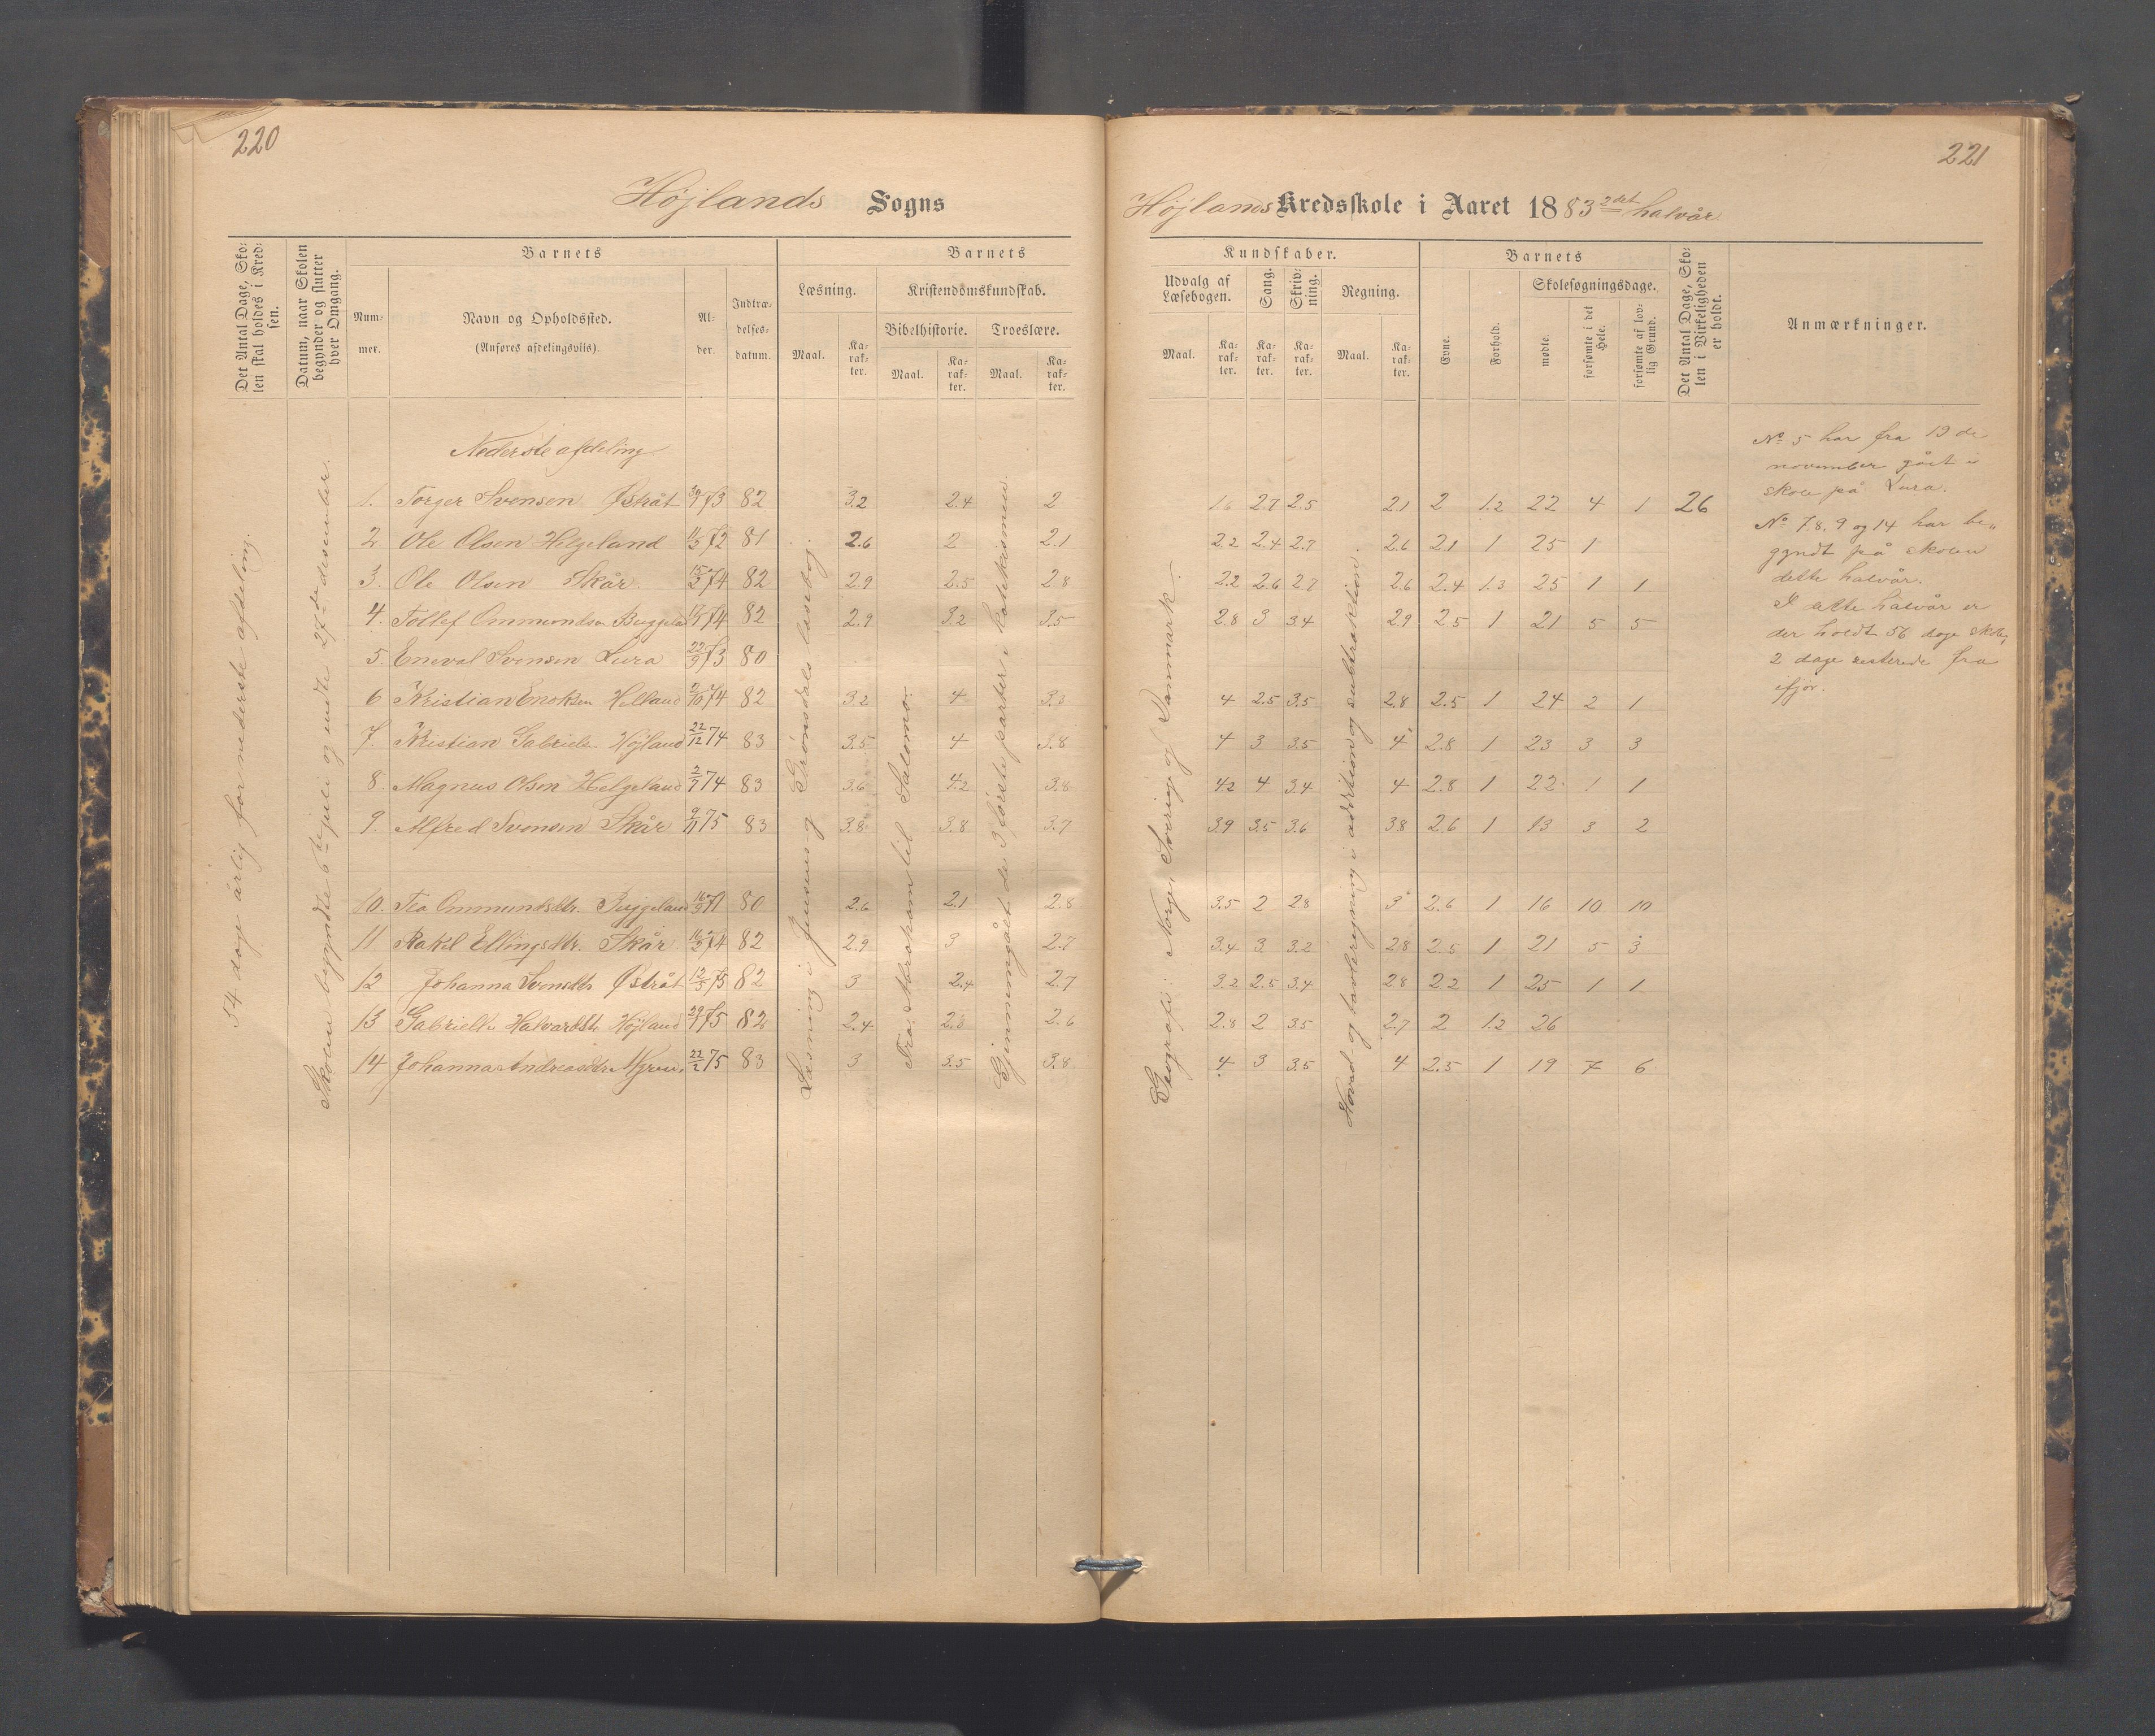 220
Højlands Sogns
Det Antal Dage, Sko-
len skal holdes i Kred-
sen.
Datum, naar Skolen
begynder og slutter
hver Omgang.
Barnets
Num-
mer.
Navn og Opholdssted.
(Anføres afdelingsviis).
Al-
der.
Indtræ-
delses-
datum.
Barnets
Læsning.
Kristendomskundskab.
Bibelhistorie. Troeslære.
Maal. Ka-
rak-
ter.
Maal. Ka-
rak-
ter.
Maal. Ka-
rak-
ter.
54 dage årlig for nederste afdeling.
Skolen begyndte 6te juli og endte 27de desember.
Læsning i Jensens og Grønsdals læsebog.
Fra Abraham til Salomo.
Gjennemgået de 3 første parter i katekismen.
Nederste afdeling
1. Torger Svensen Østråt 73 82 3.2 2.4 2
2 Ole Olsen Helgeland 11/2 72 81 2.6 2 2.1
3. Ole Olsen Skår. 15/2 74 82 2.9 2.5 2.8
4. Tollef Ommundsen 74 82 2.9 3.2 3.5
5. Eneval Svensen Lura 22/9 73 80
6 Kristian Enoksen Helland 74 82 3.2 4 3.3
7. Kristian Gabriels. Højland 22/12 74 83 3.5 4 3.8
8. Magnus Olsen Helgeland 2/7 74 83 3.6 4.2 3.8
9. Alfred Svensen Skår 9/11 75 83 3.8 3.8 3.7
10. Tea Ommundsdtr. 71 80 2.6 2.1 2.8
11. Rakel Ellingsdtr. Skår 74 82 2.9 3 2.7
12 Johanna Svensdtr Østråt 75 82 3 2.4 2.7
13 Gabrielle Halvardsdtr Højland 75 82 2.4 2.3 2.6
14 Johanna Andreasdtr. Myren. 22/2 75 83 3 3.5 3.8
221
Højlands Kredsskole i Aaret 1883 2det halvår
Kundskaber.
Udvalg af
Læsebogen.
Sang.
Skriv-
ning.
Regning.
Maal. Ka-
rak-
ter.
Ka-
rak-
ter.
Ka-
rak-
ter.
Maal. Ka-
rak-
ter.
Barnets
Evne.
Forhold.
Skolesøgningsdage.
mødte.
forsømte i det
Hele.
forsømte af lov-
lig Grund.
Det Antal Dage, Sko-
len i Virkeligheden
er holdt.
Anmærkninger.
Geografi: Norge, Sverige og Danmark.
Hoved og tavleregning i addition og subtraktion.
1.6 2.7 2.5 2.1 2 1.2 22 4 1 26
2.2 2.4 2.7 2.6 2.1 1 25 1
2.2 2.6 2.7 2.6 2.4 1.3 25 1 1
2.8 3 3.4 2.9 2.5 1 21 5 5
4 2.5 3.5 2.8 2.5 1 24 2 1
4 3 3.5 4 2.8 1 23 3 3
4.2 4 3.4 4 2.8 1 22 1 1
3.9 3.5 3.6 3.8 2.6 1 13 3 2
3.5 2 2.8 3 2.6 1 16 10 10
3.4 3 3.2 2.8 2.5 1 21 5 3
3.2 2.5 3.4 2.8 2.2 1 25 1 1
2.8 2 3.5 2.7 2 1.2 26
4 3 3.5 4 2.5 1 19 7 6
No 5 har fra 19de
november gået i
skole på Lura.
No 7. 8, 9 og 14 har be„
gyndt på skolen
dette halvår.
I dette halvår er
der holdt 56 dage skole,
2 dage resterede fra
ifjor.